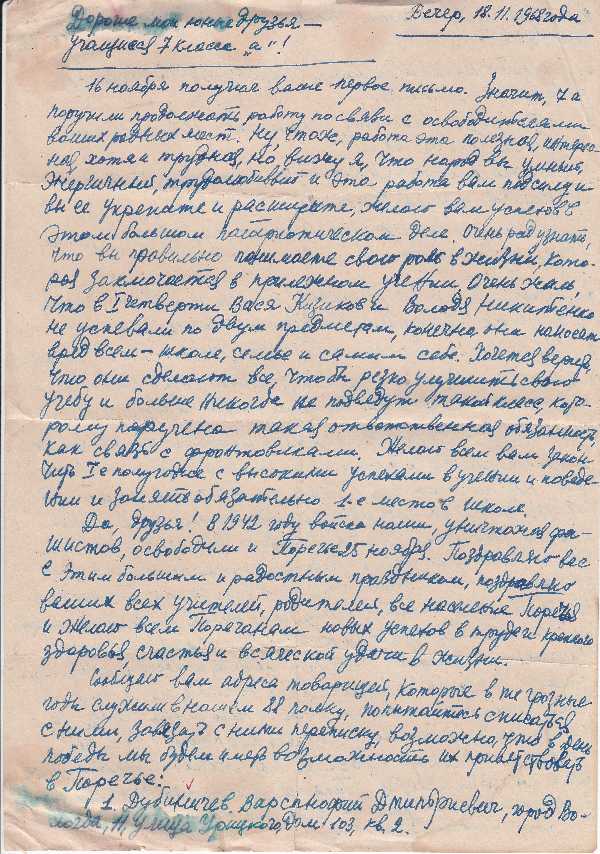 Дорогие мои юные друзья –
Вечер, 18.11.1968 года
учащиеся 7 класса "а"!
16 ноября получил ваше первое письмо. Значит, 7 а
поручили продолжать работу по связи с освободителями
ваших родных мест. Ну, чтож, работа эта полезная, интерес
ная, хотя и трудная, но, вижу я, что народ вы умный,
энергичный, трудолюбивый и эта работа вам под силу и
вы ее укрепите и расширите, желаю вам успехов в
этом большом патриотическом деле. Очень рад узнать,
что вы правильно понимаете свою роль в жизни, кото-
рая заключается в прилежном учении. Очень жаль,
что в I четверти Вася Кизиков и Володя Никитенко
не успевали по двум предметам, конечно они наносят
вред всем – школе, семье и самим себе. Хочется верить,
что они сделают все, чтобы резко улучшить свою
учебу и больше никогда не подведут такой класс, кото-
рому поручена такая ответственная обязанность,
как связь с фронтовиками. Желаю всем вам закон-
чить I-е полугодие с высокими успехами в учении и поведе-
нии и занять обязательно 1-е место в школе.
Да, друзья! В 1942 году войска наши, уничтожая фа-
шистов, освободили и Поречье 25 ноября. Поздравляю вас
с этим большим и радостным праздником, поздравляю
ваших всех учителей, родителей, все население Поречья
и желаю всем Поречанам новых успехов в труде, крепкого
здоровья, счастья и всяческой удачи в жизни.
Сообщаю вам адреса товарищей, которые в те грозные
годы служили в нашем 22 полку, попытайтесь списаться
с ними, завязать с ними переписку, возможно, что в День
победы мы будем иметь возможность их приветствовать
в Поречье:
1. Дубиничев Варсанофий Дмитриевич, город Во-
логда, 11, улица Урицкого, дом 103, кв. 2.